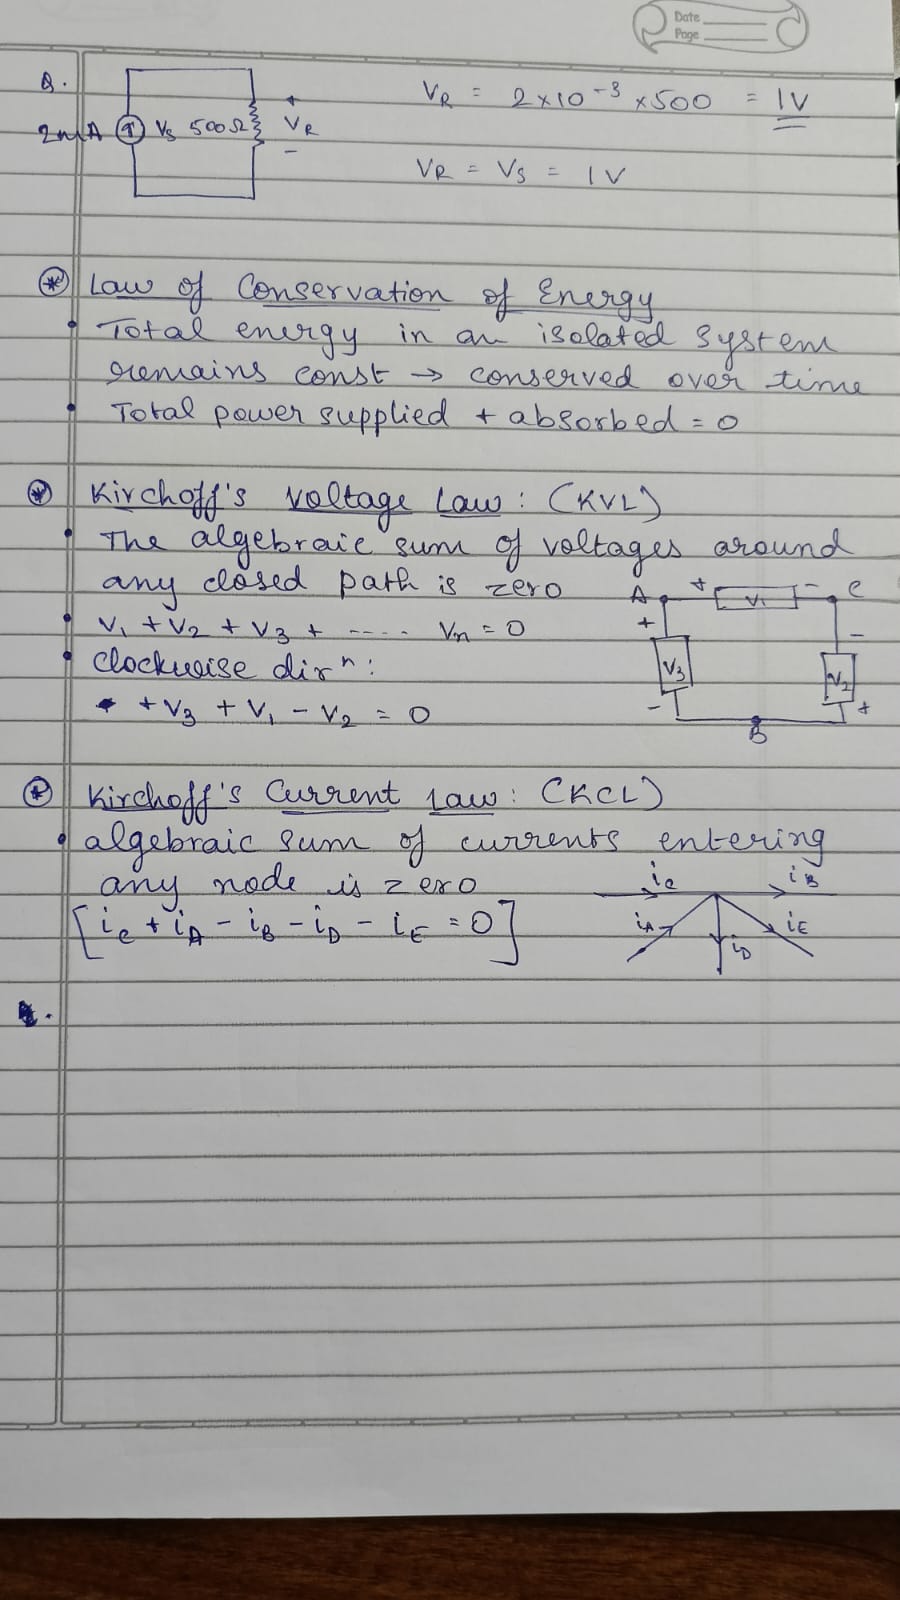 Date
Page
Q.
2mA Vs 500Ω VR
+
-
VR = 2×10⁻³ ×500 = 1V
VR = Vs = 1V
Law of Conservation of Energy
Total energy in an isolated system
remains const → conserved over time
Total power supplied + absorbed = 0
Kirchoff's Voltage Law: (KVL)
The algebraic sum of voltages around
any closed path is zero
V₁ + V₂ + V₃ + ---- Vn = 0
Clockwise dirⁿ:
+V₃ + V₁ - V₂ = 0
A + V₁ - C
+ -
V₃ V₂
- +
B
Kirchoff's Current Law: (KCL)
algebraic sum of currents entering
any node is zero
[ic + iA - iB - iD - iE = 0]
ic iB
iA iE
iD